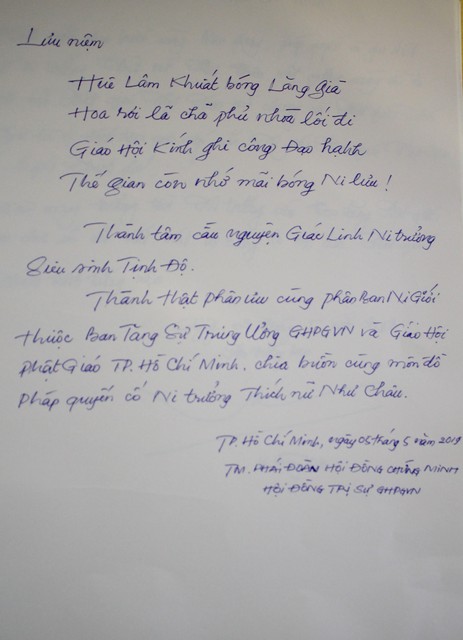 Lưu niệm
Huê Lâm Khuất bóng Lăng Già
Hoa rơi lã chã phủ nhòa lối đi
Giáo Hội Kính ghi công Đạo hạnh
Thế gian còn nhớ mãi bóng Ni lưu!
Thành tâm cầu nguyện Giác Linh Ni trưởng
Siêu sinh Tịnh Độ.
Thành thật phân ưu cùng phân Ban Ni Giới
thuộc Ban Tăng Sự Trung Ương GHPGVN và Giáo Hội
phật Giáo TP. Hồ Chí Minh. chia buồn cùng môn đồ
pháp quyến cố Ni trưởng Thích nữ Như Châu.
TP. Hồ Chí Minh, ngày 05 tháng 5 năm
TM. PHÁI ĐOÀN HỘI ĐỒNG CHỨNG MINH
HỘI ĐỒNG TRỊ SỰ GHPGVN